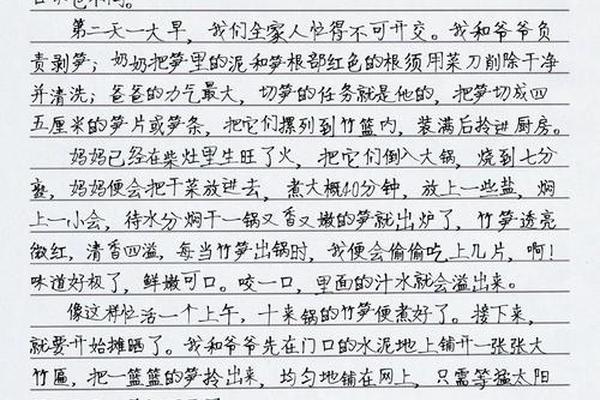 第二天一大早，我们全家人忙得不可开交。我和爷爷负
责剥笋；奶奶把笋里的泥和笋根部红色的根须用菜刀削除干净
并清洗；爸爸的力气最大，切笋的任务就是他的，把笋切成四
五厘米的笋片或笋条，把它们摞列到竹篮内，装满后拎进厨房。
妈妈已经在柴灶里生旺了火，把它们倒入大锅，烧到七分
熟，妈妈便会把干菜放进去，煮大概40分钟，放上一些盐，焖
上一小会，待水分焖干一锅又香又嫩的笋就出炉了，竹笋透亮
微红，清香四溢，每当竹笋出锅时，我便会偷偷吃上几片，啊！
味道好极了，鲜嫩可口。咬一口，里面的汁水就会溢出来。
像这样忙活一个上午，十来锅的竹笋便煮好了。接下来，
就要开始摊晒了。我和爷爷先在门口的水泥地上铺开一张张大
竹匾，把一篮篮的笋拎出来，均匀地铺在网上，只需等猛太阳